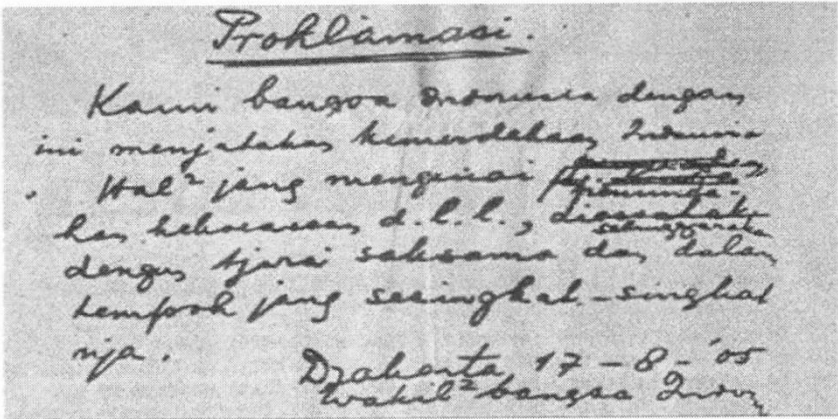 Proklamasi.
Kami bangsa Indonesia dengan
ini menjatakan kemerdekaan Indonesia
Hal² jang mengenai
pemindahan
kekoeasaan d.l.l., diselenggarakan
dengan tjara saksama dan dalam
tempoh jang sesingkat-singkat
nja.
Djakarta 17 - 8 - '05
Wakil² bangsa Indon